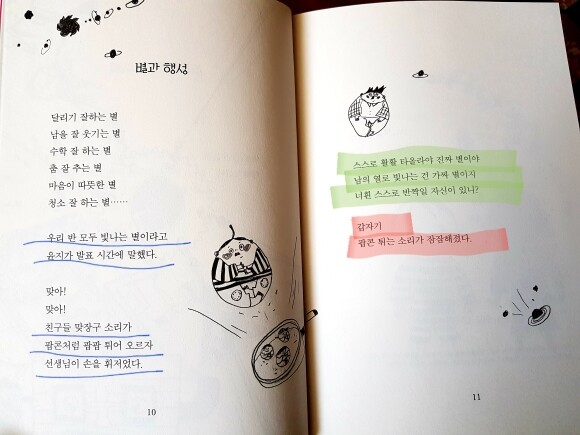 별과 행성
달리기 잘하는 별
남을 잘 웃기는 별
수학 잘 하는 별
춤 잘 추는 별
마음이 따뜻한 별
청소 잘 하는 별……
우리 반 모두 빛나는 별이라고
윤지가 발표 시간에 말했다.
맞아!
맞아!
친구들 맞장구 소리가
팝콘처럼 팡팡 튀어 오르자
선생님이 손을 휘저었다.
10
스스로 활활 타올라야 진짜 별이야
남의 열로 빛나는 건 가짜 별이지
너흰 스스로 반짝일 자신이 있니?
갑자기
팝콘 튀는 소리가 잠잠해졌다.
11